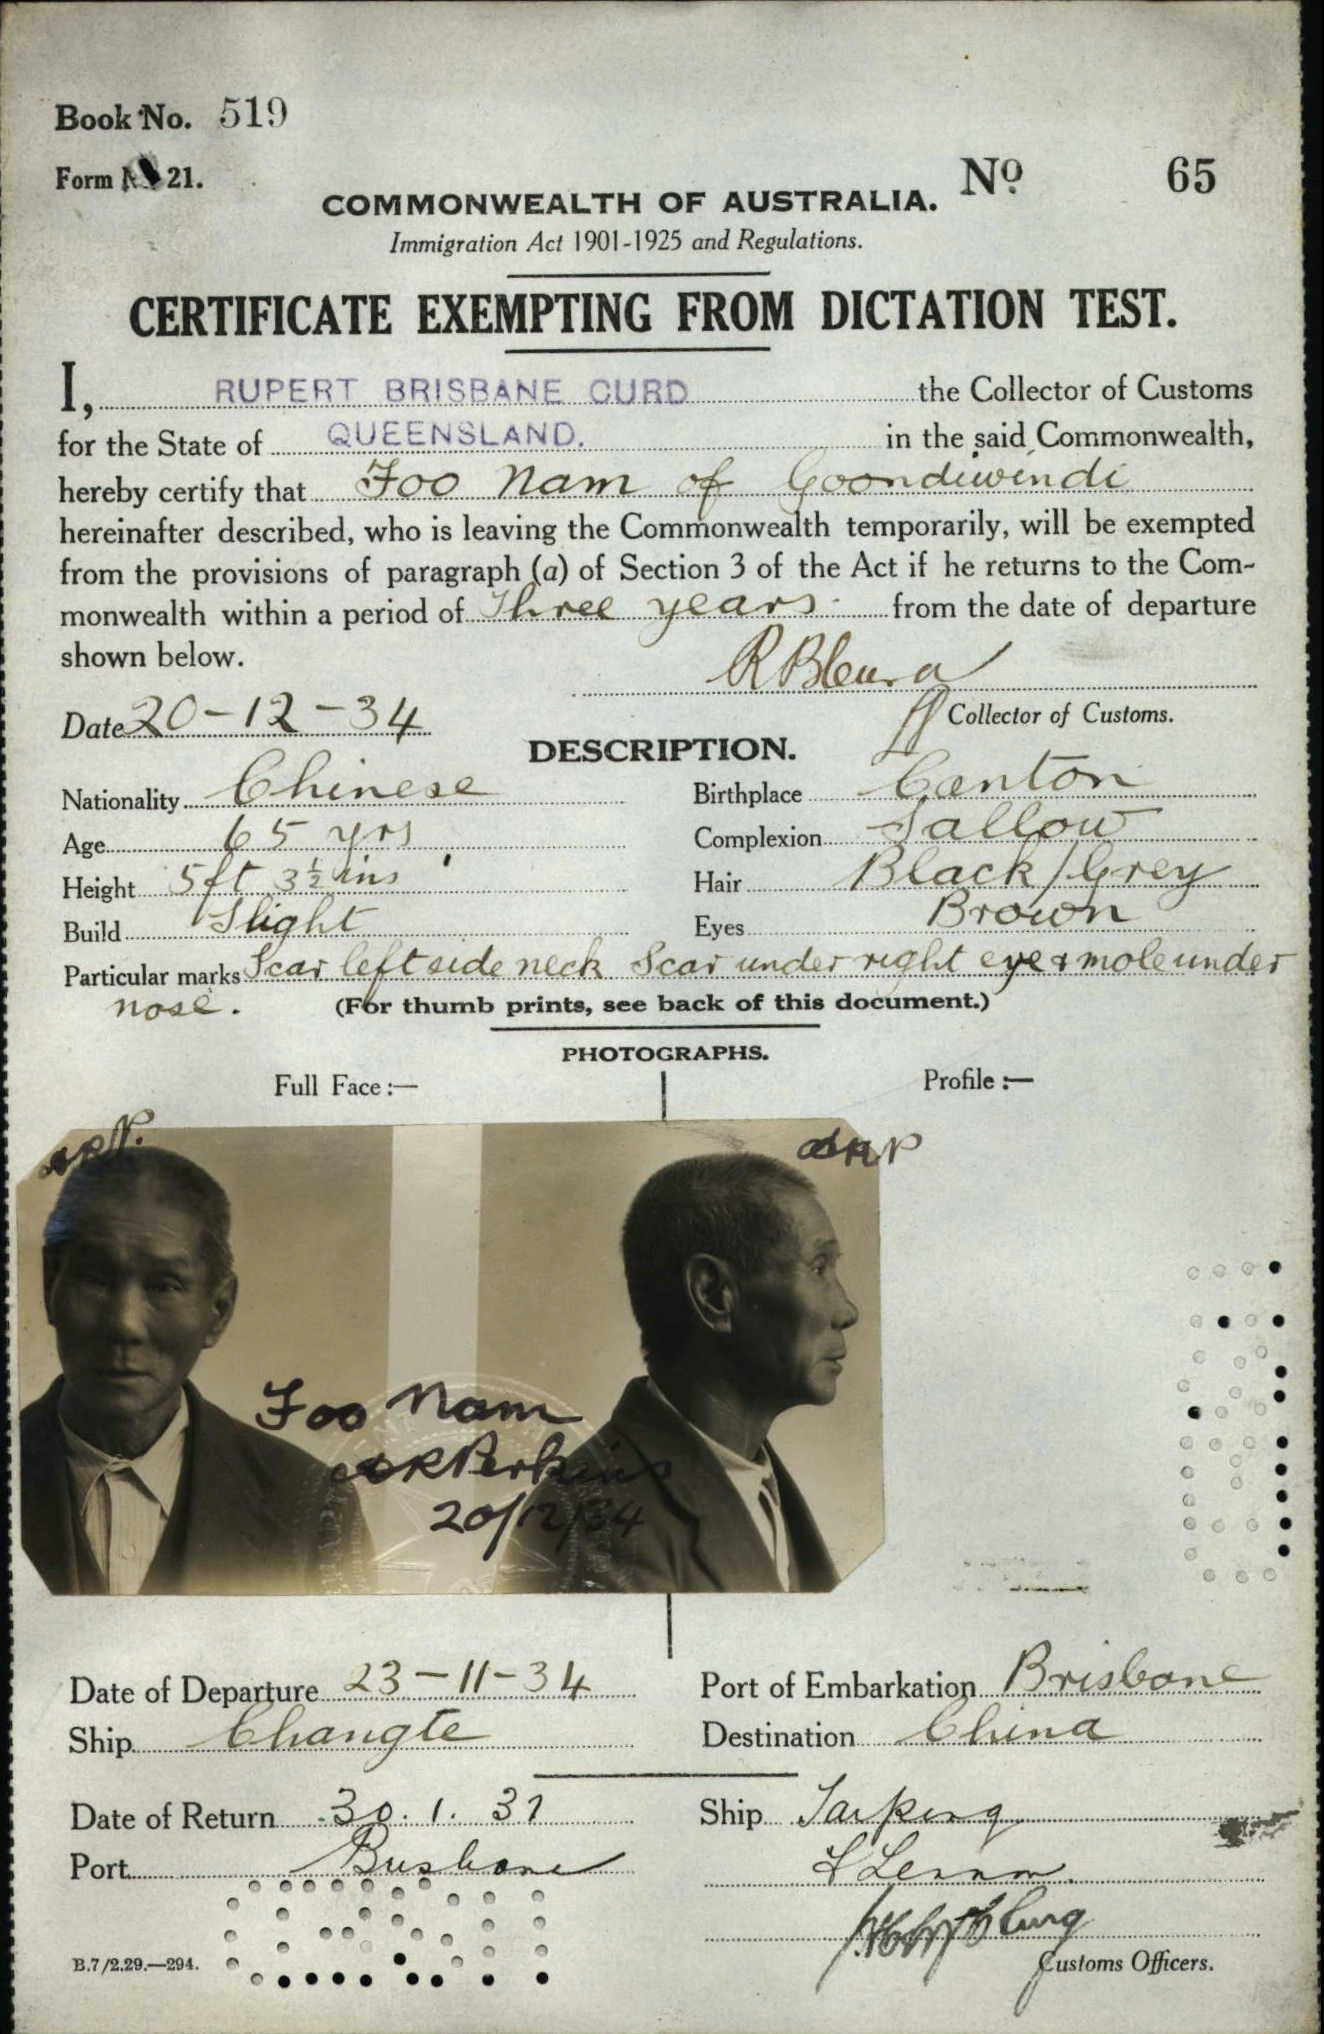 Book No. 519
Form 21.
No 65
COMMONWEALTH OF AUSTRALIA.
Immigration Act 1901-1925 and Regulations.
CERTIFICATE EXEMPTING FROM DICTATION TEST.
I, RUPERT BRISBANE CURD the Collector of Customs
for the State of QUEENSLAND. in the said Commonwealth,
hereby certify that Foo Nam of Goondiwindi
hereinafter described, who is leaving the Commonwealth temporarily, will be exempted
from the provisions of paragraph (a) of Section 3 of the Act if he returns to the Com-
monwealth within a period of Three years from the date of departure
shown below.
Date 20-12-34
Collector of Customs.
DESCRIPTION.
Nationality Chinese
Birthplace Canton
Age 65 yrs
Complexion Sallow
Height 5ft 3½ ins
Hair Black/Grey
Build Slight
Eyes Brown
Particular marks Scar left side neck Scar under right eye & mole under
nose.
(For thumb prints, see back of this document.)
PHOTOGRAPHS.
Full Face:—
Profile:—
Foo Nam
Perkins
20/12/34
Date of Departure 23-11-34
Port of Embarkation Brisbane
Ship Changte
Destination China
Date of Return 30.1.37
Ship Taiping
Port Brisbane
B.7/2.29.—294.
Customs Officers.